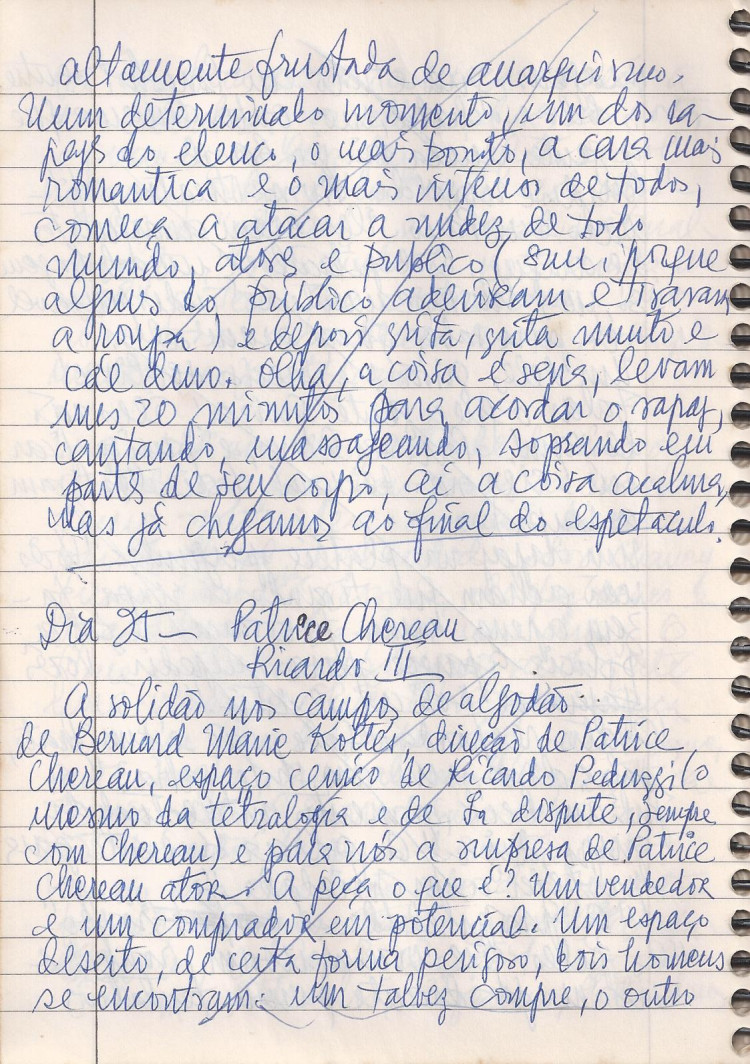 altamente frustada de anarquismo.
Num determinado momento, um dos ra-
pazes do elenco, o mais bonito, a cara mais
romantica e o mais interior de todos,
começa a atacar a nudez de todo
mundo, atores e publico (sim, porque
alguns do público aderiram e tiravam
a roupa) e depois grita, grita muito e
cae duro. Olha, a coisa é seria, levam
uns 20 minutos para acordar o rapaz,
cantando, massageando, soprando em
partes de seu corpo, aí a coisa acalma,
mas já chegamos ao final do espetaculo.
Dia 25 - Patrice Chereau
Ricardo III
A solidão nos campos de algodão.
de Bernard Marie Koltes, direção de Patrice
Chereau, espaço cenico de Ricardo Peduzzi (o
mesmo da tetralogia e de La dispute, sempre
com Chereau) e para nós a surpresa de Patrice
Chereau ator. A peça o que é? Um vendedor
e um comprador em potencial. Um espaço
deserto, de certa forma perigoso, dois homens
se encontram. Um talvez compre, o outro